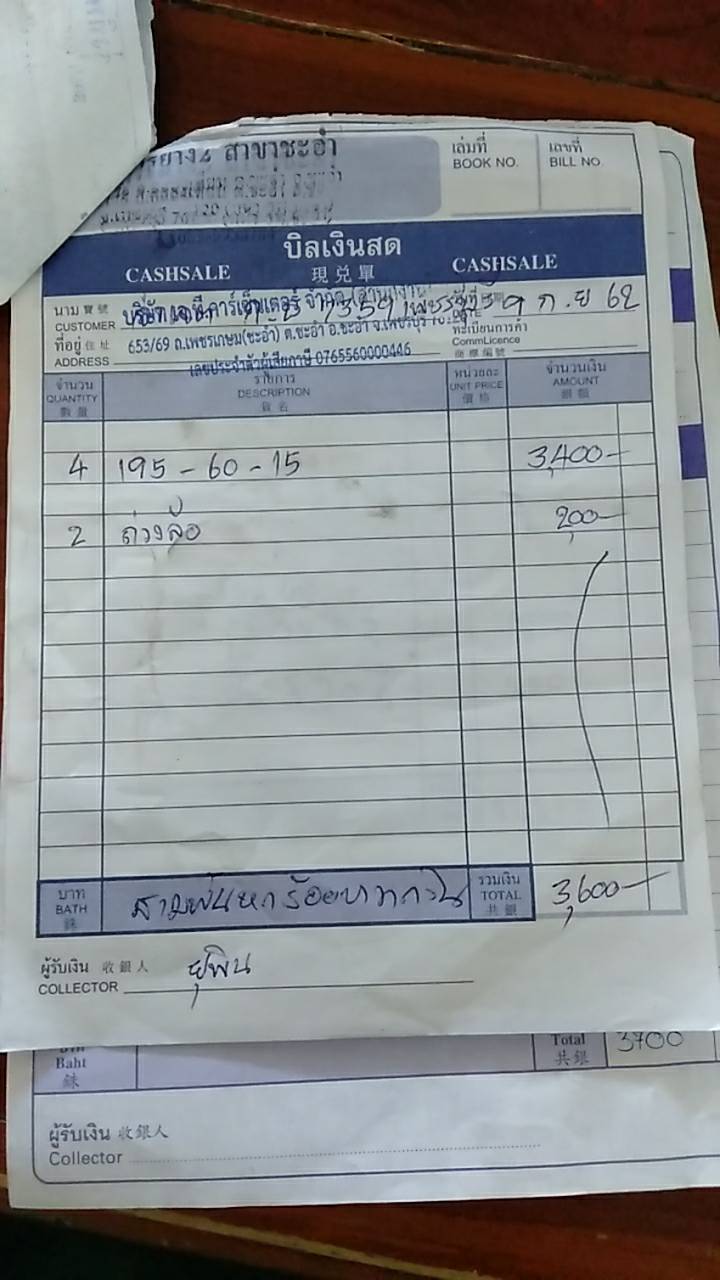 สาขาชะอำ
เล่มที่
BOOK NO.
เลขที่
BILL NO.
บิลเงินสด
CASHSALE 現兑單 CASHSALE
นาม 寶號
CUSTOMER
9 ก.ย 62
ที่อยู่ 住址
ADDRESS
653/69 ถ.เพชรเกษม(ชะอำ) ต.ชะอำ อ.ชะอำ จ.เพชรบุรี
ทะเบียนการค้า
CommLicence
เลขประจำตัวผู้เสียภาษี 0765560000446
จำนวน
QUANTITY
數量
รายการ
DESCRIPTION
貨名
หน่วยละ
UNIT PRICE
價格
จำนวนเงิน
AMOUNT
銀額
4 195-60-15 3,400-
2 ถ่วงล้อ 200-
บาท
BATH
銖
สามพันหกร้อยบาทถ้วน
รวมเงิน
TOTAL
共銀
3,600-
ผู้รับเงิน 收銀人
COLLECTOR
ยุพิน
Baht
銖
Total
共銀
3700
ผู้รับเงิน 收銀人
Collector